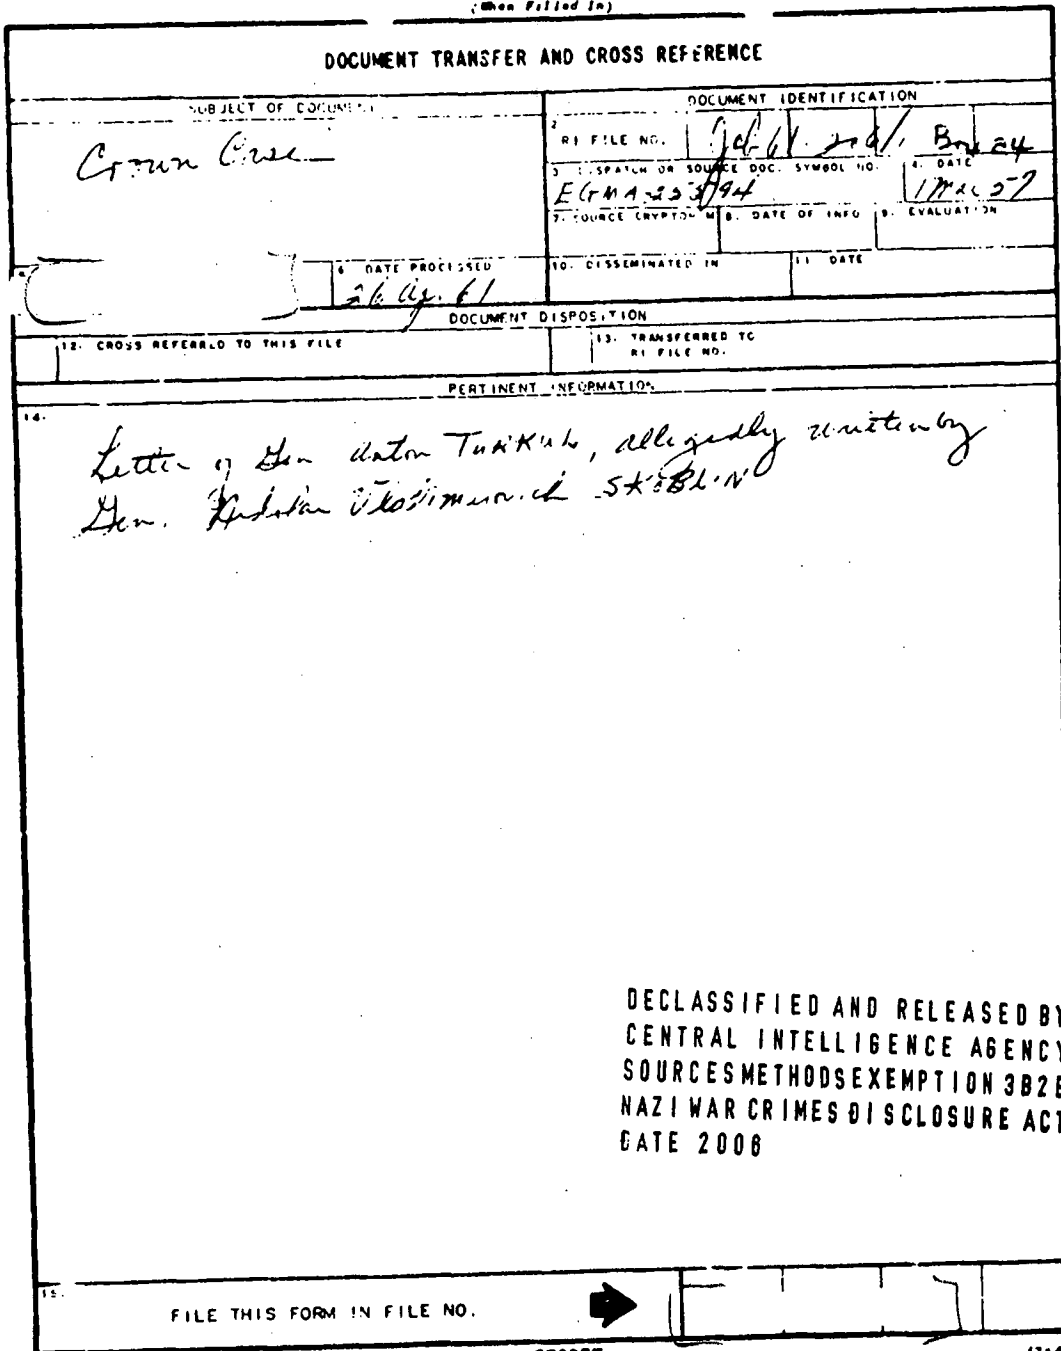 (When Filled In)
DOCUMENT TRANSFER AND CROSS REFERENCE
SUBJECT OF DOCUMENT
DOCUMENT IDENTIFICATION
Crown Case
2
RI FILE NO.
Box 24
3. DISPATCH OR SOURCE DOC. SYMBOL NO.
4. DATE
EGMA-25594
1 Mar 57
7. SOURCE CRYPTONYM
8. DATE OF INFO
9. EVALUATION
6. DATE PROCESSED
10. DISSEMINATED IN
11. DATE
61
DOCUMENT DISPOSITION
12. CROSS REFERRED TO THIS FILE
13. TRANSFERRED TO
RI FILE NO.
PERTINENT INFORMATION
14.
Letter of Gen Anton Turkul, allegedly written by
Gen. Vladimirovich SKOBLIN
DECLASSIFIED AND RELEASED BY
CENTRAL INTELLIGENCE AGENCY
SOURCES METHODS EXEMPTION 3B2B
NAZI WAR CRIMES DISCLOSURE ACT
DATE 2006
15.
FILE THIS FORM IN FILE NO.